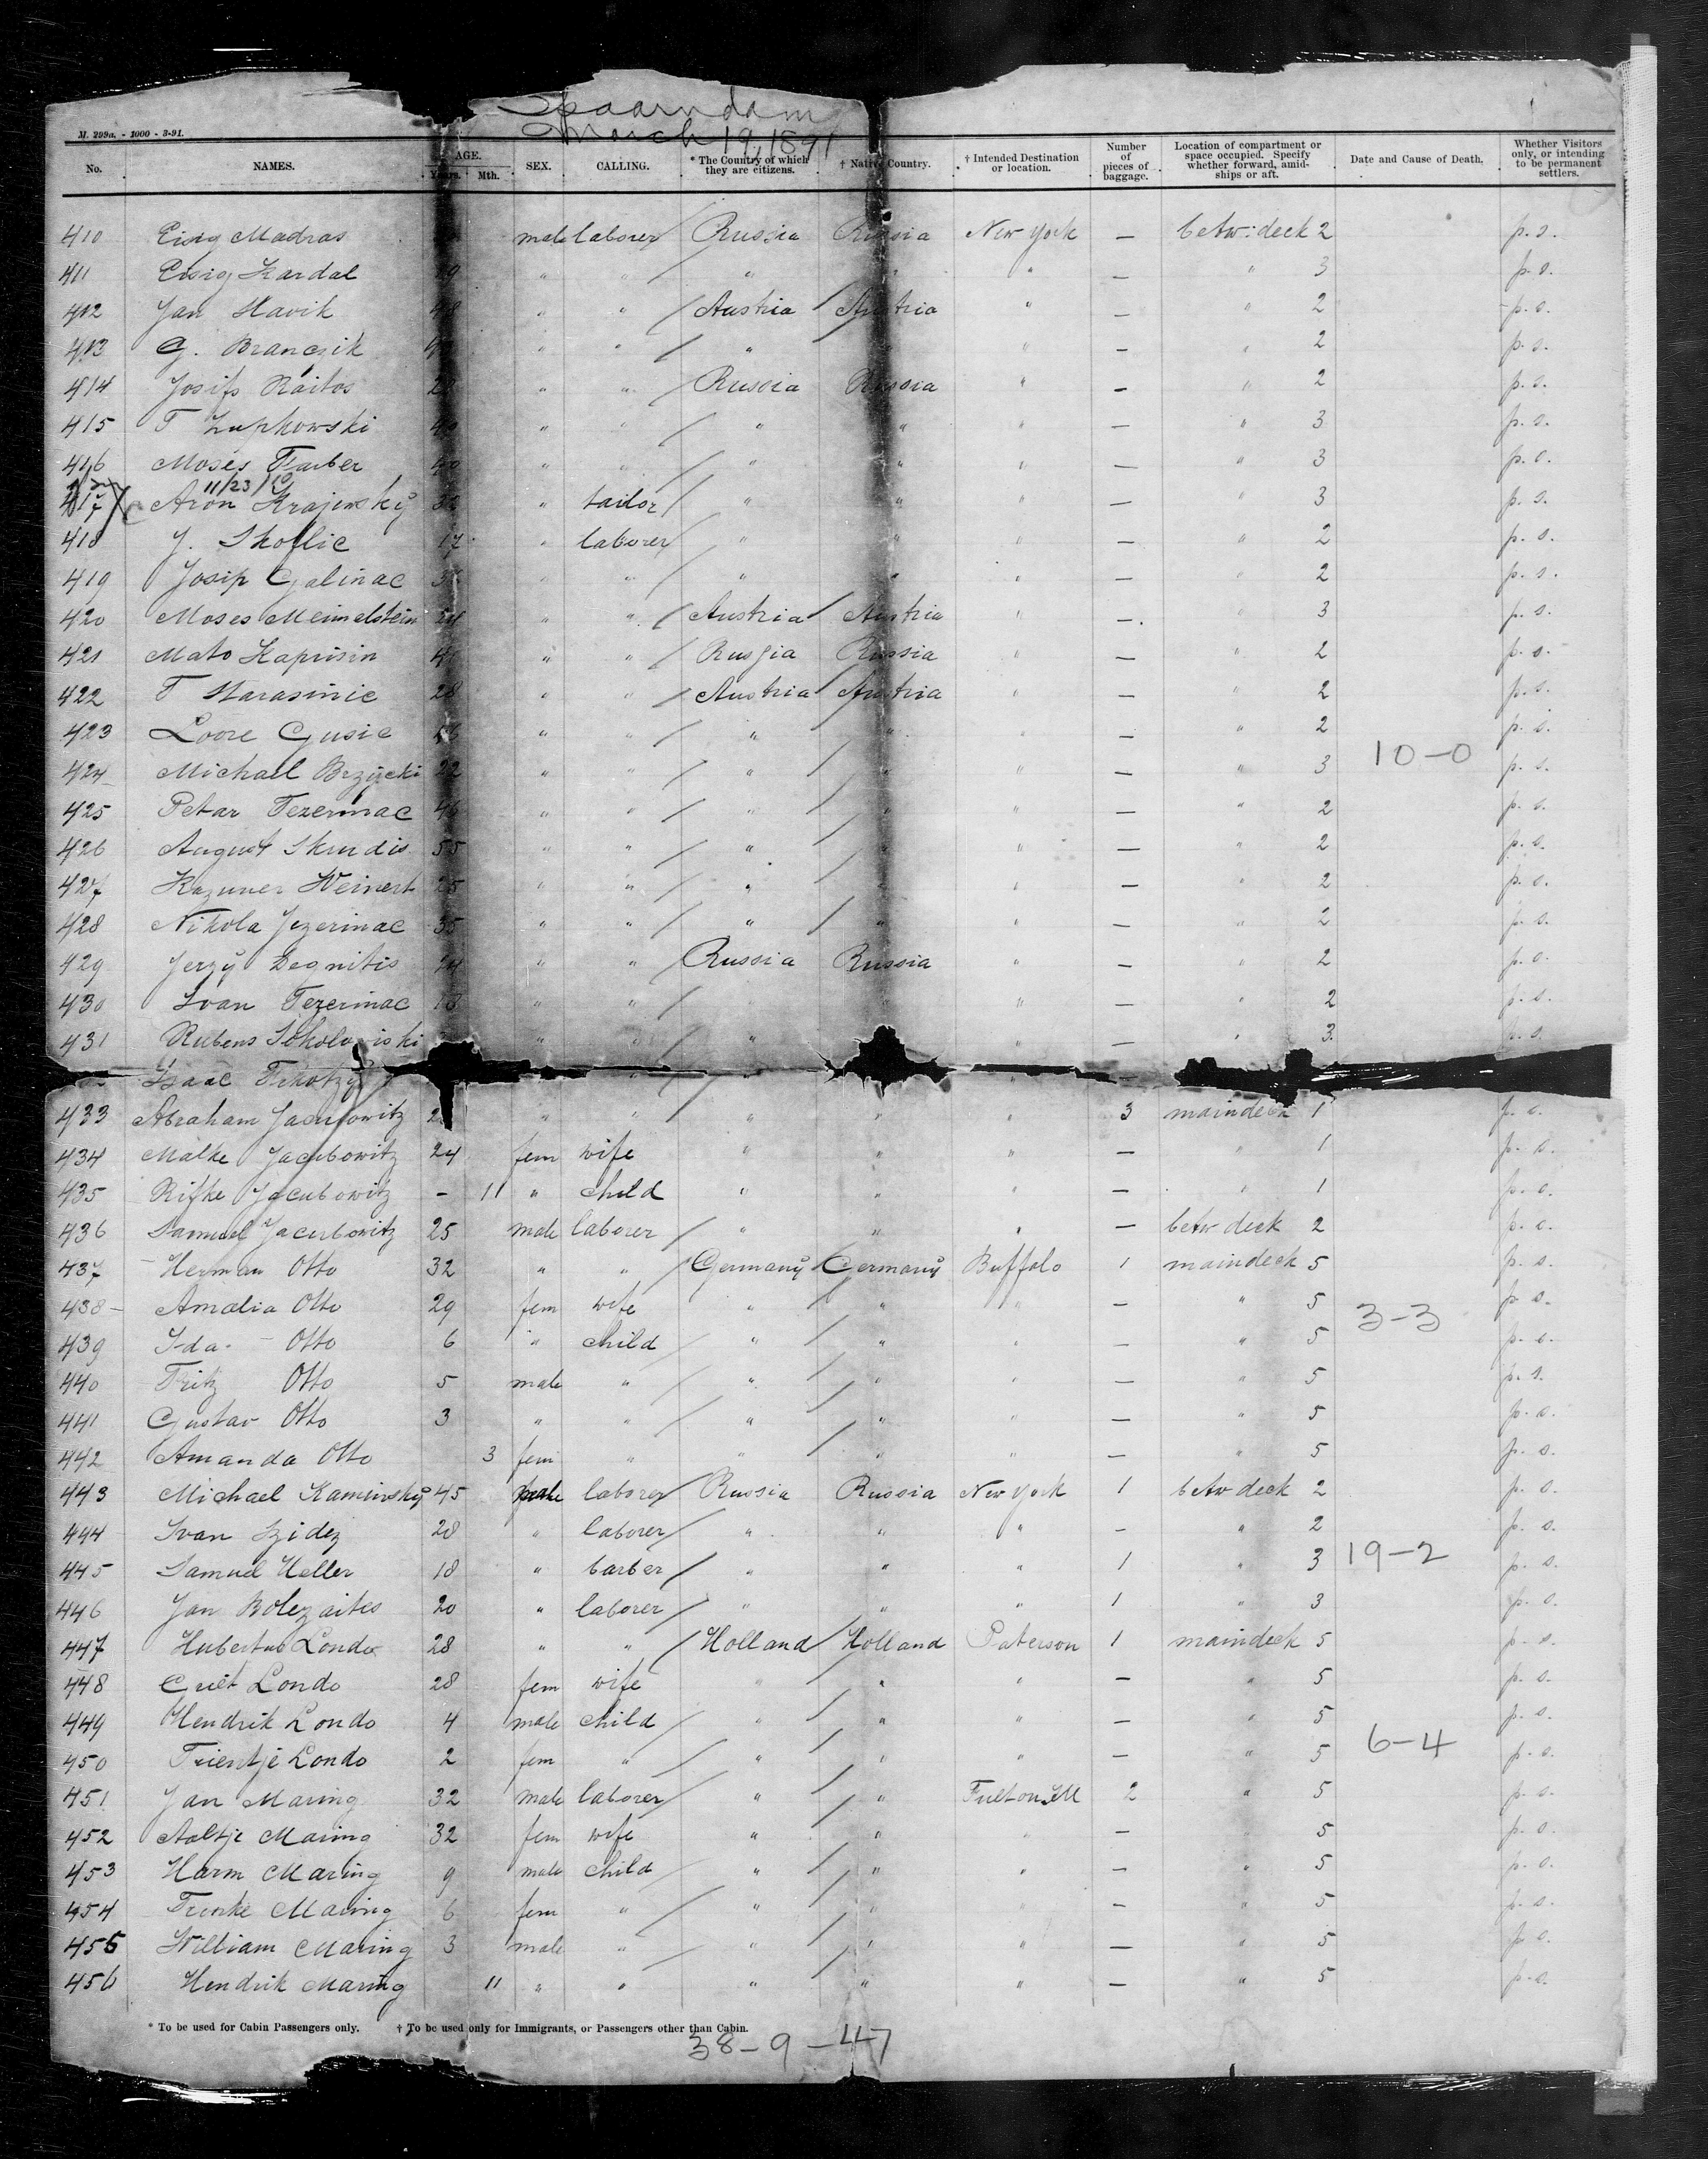 Spaarndam
March 19, 1891
M. 299a. - 1000 - 3-91.
No. NAMES. AGE. Years. Mth. SEX. CALLING. * The Country of which they are citizens. † Native Country. † Intended Destination or location. Number of pieces of baggage. Location of compartment or space occupied. Specify whether forward, amidships or aft. Date and Cause of Death. Whether Visitors only, or intending to be permanent settlers.
410 Eisig Madras male laborer / Russia Russia New York — betw. deck 2 p. s.
411 Eisig Kardal " " / " " " — " 3 p. s.
412 Jan Slavik " " / Austria / Austria " — " 2 p. s.
413 G. Branczik " " / " " — " 2 p. s.
414 Josifs Raitos " " Russia Russia " — " 2 p. s.
415 T Lupkowski " " / " " " — " 3 p. s.
416 Moses Farber 40 " " / " " " — " 3 p. s.
11/23/
417 Aron Krajewsky " tailor / " " " — " 3 p. s.
418 J. Skoflic 17 " laborer / " " " — " 2 p. s.
419 Josip Galinac " " / " " " — " 2 p. s.
420 Moses Meimelstein 24 " " / Austria / Austria " — " 3 p. s.
421 Mato Kaprisin " " / Russia Russia " — " 2 p. s.
422 T Starasinic 28 " " / Austria / Austria " — " 2 p. s.
423 Loore Gusic " " / " " " — " 2 p. s.
424 Michael Brzycki 22 " " / " / " — " 3 10-0 p. s.
425 Petar Tezermac 46 " " / " / " — " 2 p. s.
426 August Skrudis 55 " " / " / " " — " 2 p. s.
427 Kazimer Weinert 25 " " / " / " " — " 2 p. s.
428 Nikola Jezerinac 35 " " / " / " " — " 2 p. s.
429 Jerzy Degnitis 24 " " / Russia Russia " — " 2 p. s.
430 Ivan Tezerinac 18 " " / " — " 2 p. s.
431 Rubens Sokolowiski " " / " " — " 3. p. s.
Isaac " / "
433 Abraham Jacubowitz " " / " " " 3 maindeck 1 p. s.
434 Malke Jacubowitz 24 fem wife " " " — " 1 p. s.
435 Rifke Jacubowitz - 11 " child " " " — " 1 p. s.
436 Samuel Jacubowitz 25 male laborer / " " " — betw deck 2 p. s.
437 Herman Otto 32 " " / Germany / Germany Buffalo 1 maindeck 5 p. s.
438 Amalia Otto 29 fem wife " / " " — " 5 3-3 p. s.
439 Ida Otto 6 " child / " / " " — " 5 p. s.
440 Fritz Otto 5 male " / " / " " — " 5 p. s.
441 Gustav Otto 3 " " / " / " " — " 5 p. s.
442 Amanda Otto 3 fem " " / " " — " 5 p. s.
443 Michael Kaminsky 45 male laborer / Russia Russia New York 1 betw deck 2 p. s.
444 Ivan Szidez 28 " laborer / " " " — " 2 p. s.
445 Samuel Heller 18 " barber / " " " 1 " 3 19-2 p. s.
446 Jan Bolezaites 20 " laborer / " " " 1 " 3 p. s.
447 Hubertus Londo 28 " " / Holland / Holland Paterson 1 maindeck 5 p. s.
448 Londo 28 fem wife " " " — " 5 p. s.
449 Hendrik Londo 4 male child / " / " " — " 5 p. s.
450 Trientje Londo 2 fem " / " / " " — " 5 6-4 p. s.
451 Jan Maring 32 male laborer / " / " Fulton Ill 2 " 5 p. s.
452 Aaltje Maring 32 fem wife " / " " — 5 p. s.
453 Harm Maring 9 male child / " / " " — " 5 p. s.
454 Trinke Maring 6 fem " / " / " " — " 5 p. s.
455 William Maring 3 male " / " / " " — " 5 p. s.
456 Hendrik Maring 11 " " " / " " — " 5 p. s.
* To be used for Cabin Passengers only. † To be used only for Immigrants, or Passengers other than Cabin.
38-9-47